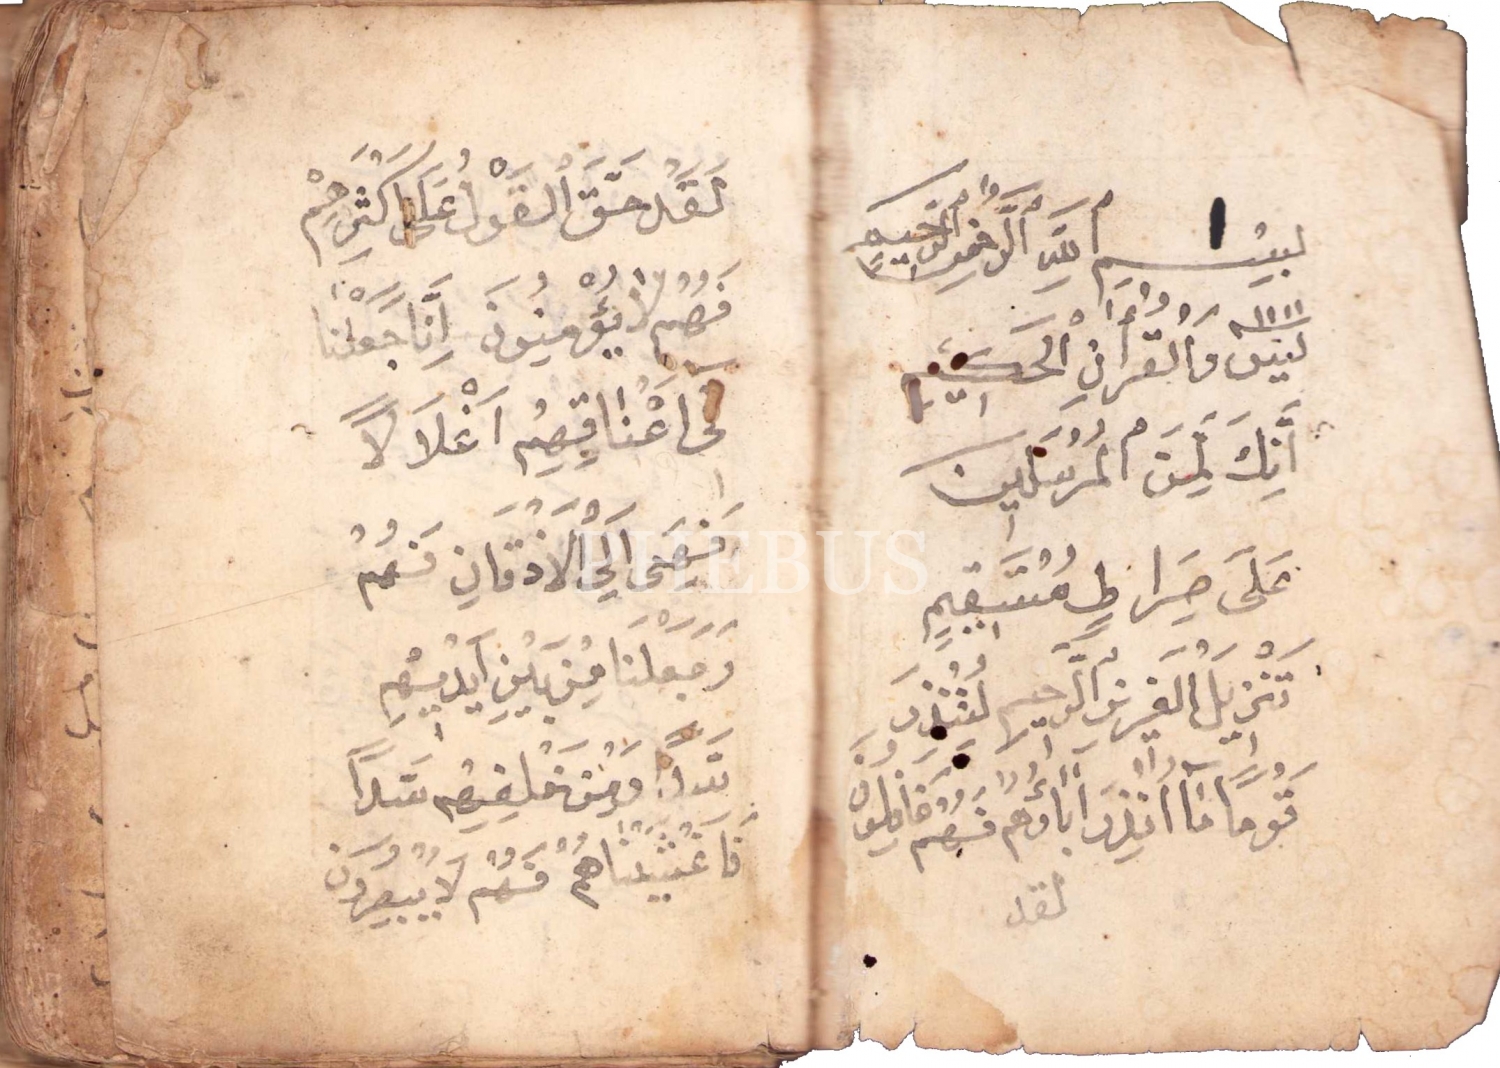 بِسْمِ اللَّهِ الرَّحْمٰنِ الرَّحِيمِ
يس وَالْقُرْاٰنِ الْحَكِيمِ
اَنِّكَ لَمِنَ الْمُرْسَلِينَ
عَلَى صِرَاطٍ مُسْتَقِيمٍ
تَنْزِيلَ الْعَزِيزِ الرَّحِيمِ لِتُنْذِرَ
قَوْمًا مَّا اُنْذِرَ اٰبَاؤُهُمْ فَهُمْ غَافِلُونَ
لقد
لَقَدْ حَقَّ الْقَوْلُ عَلَى اَكْثَرِهِمْ
فَهُمْ لَا يُؤْمِنُونَ اِنَّا جَعَلْنَا
فِى اَعْنَاقِهِمْ اَغْلَا لًا
فَهِىَ اِلَى الْاَذْقَانِ فَهُمْ
وَجَعَلْنَا مِنْ بَيْنِ اَيْدِيهِمْ
سَدًّا وَمِنْ خَلْفِهِمْ سَدًّا
فَاَغْشَيْنَاهُمْ فَهُمْ لَا يُبْصِرُونَ
PHEBUS